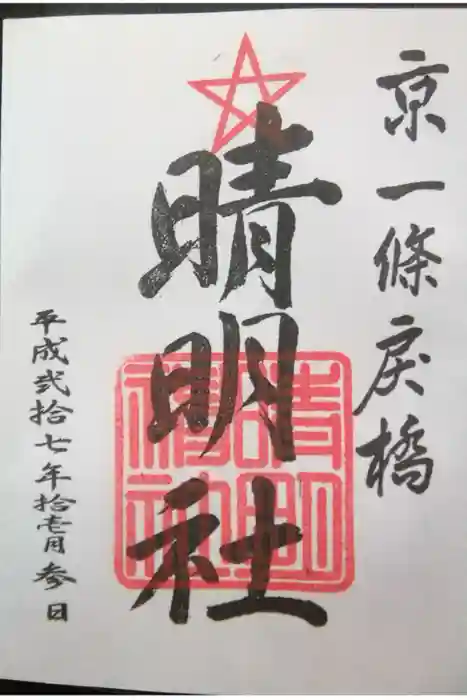 京一條戻橋
晴明社
晴明神社
平成弐拾七年拾壱月参日